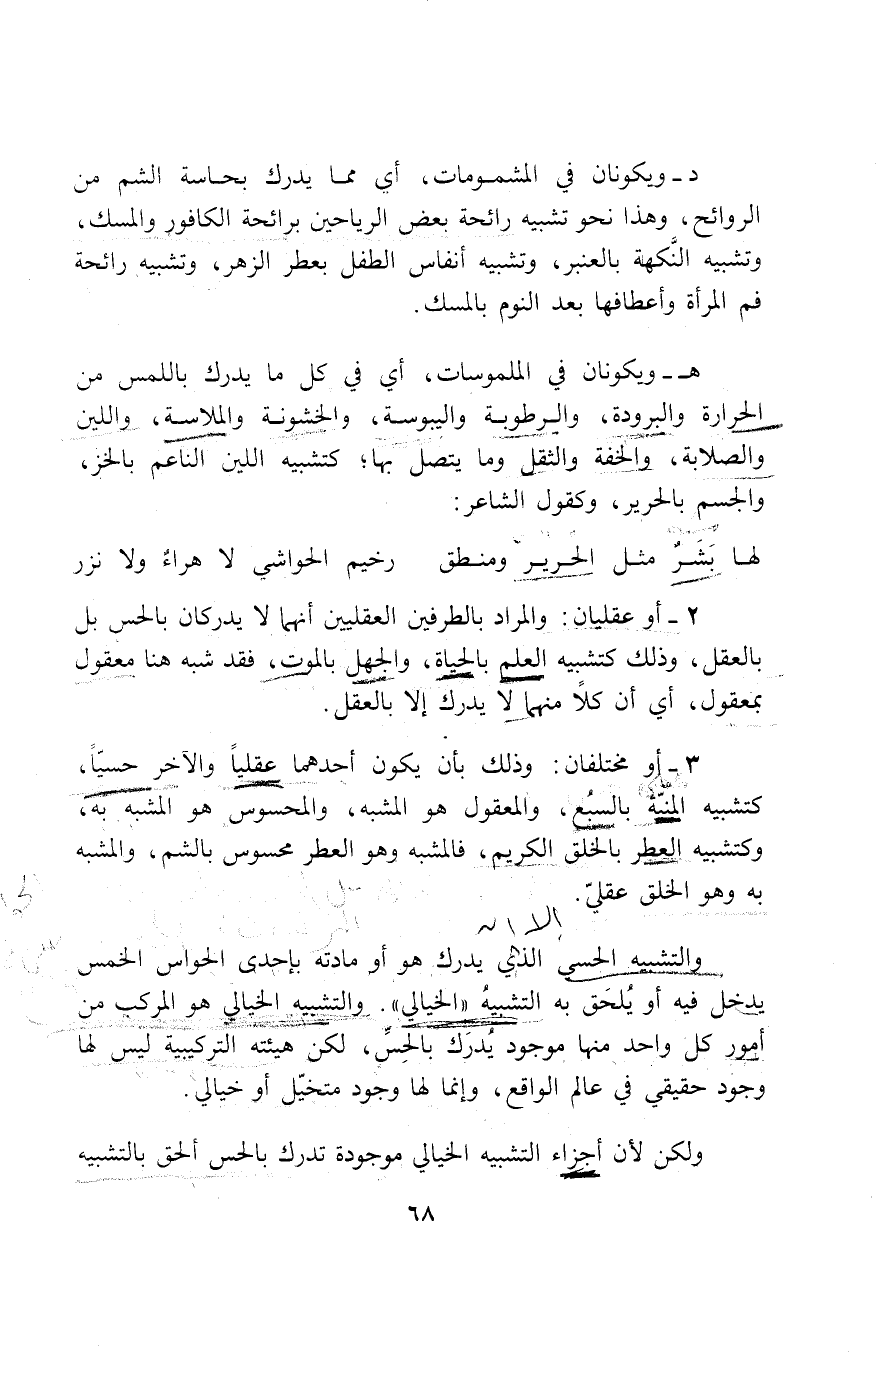 د ـ ويكونان في المشمومات، أي مما يدرك بحاسة الشم من
الروائح، وهذا نحو تشبيه رائحة بعض الرياحين برائحة الكافور والمسك،
وتشبيه النَّكهة بالعنبر، وتشبيه أنفاس الطفل بعطر الزهر، وتشبيه رائحة
فم المرأة وأعطافها بعد النوم بالمسك.
هـ ـ ويكونان في الملموسات، أي في كل ما يدرك باللمس من
الحرارة والبرودة، والرطوبة واليبوسة، والخشونة والملاسة، واللين
والصلابة، والخفة والثقل وما يتصل بها؛ كتشبيه اللين الناعم بالخز،
والجسم بالحرير، وكقول الشاعر:
لها بَشَرٌ مثل الحرير ومنطق رخيم الحواشي لا هراءٌ ولا نزر
٢ ـ أو عقليان: والمراد بالطرفين العقليين أنهما لا يدركان بالحس بل
بالعقل، وذلك كتشبيه العلم بالحياة، والجهل بالموت، فقد شبه هنا معقول
بمعقول، أي أن كلاً منهما لا يدرك إلا بالعقل.
٣ ـ أو مختلفان: وذلك بأن يكون أحدهما عقلياً والآخر حسيّاً،
كتشبيه المنيّة بالسبُع، والمعقول هو المشبه، والمحسوس هو المشبه به،
وكتشبيه العطر بالخلق الكريم، فالمشبه وهو العطر محسوس بالشم، والمشبه
به وهو الخلق عقليّ.
والتشبيه الحسي الذي يدرك هو أو مادته بإحدى الحواس الخمس
يدخل فيه أو يُلحَق به التشبيهُ «الخيالي». والتشبيه الخيالي هو المركب من
أمور كل واحد منها موجود يُدرَك بالحِسِّ، لكن هيئته التركيبية ليس لها
وجود حقيقي في عالم الواقع، وإنما لها وجود متخيّل أو خيالي.
ولكن لأن أجزاء التشبيه الخيالي موجودة تدرك بالحس ألحق بالتشبيه
٦٨